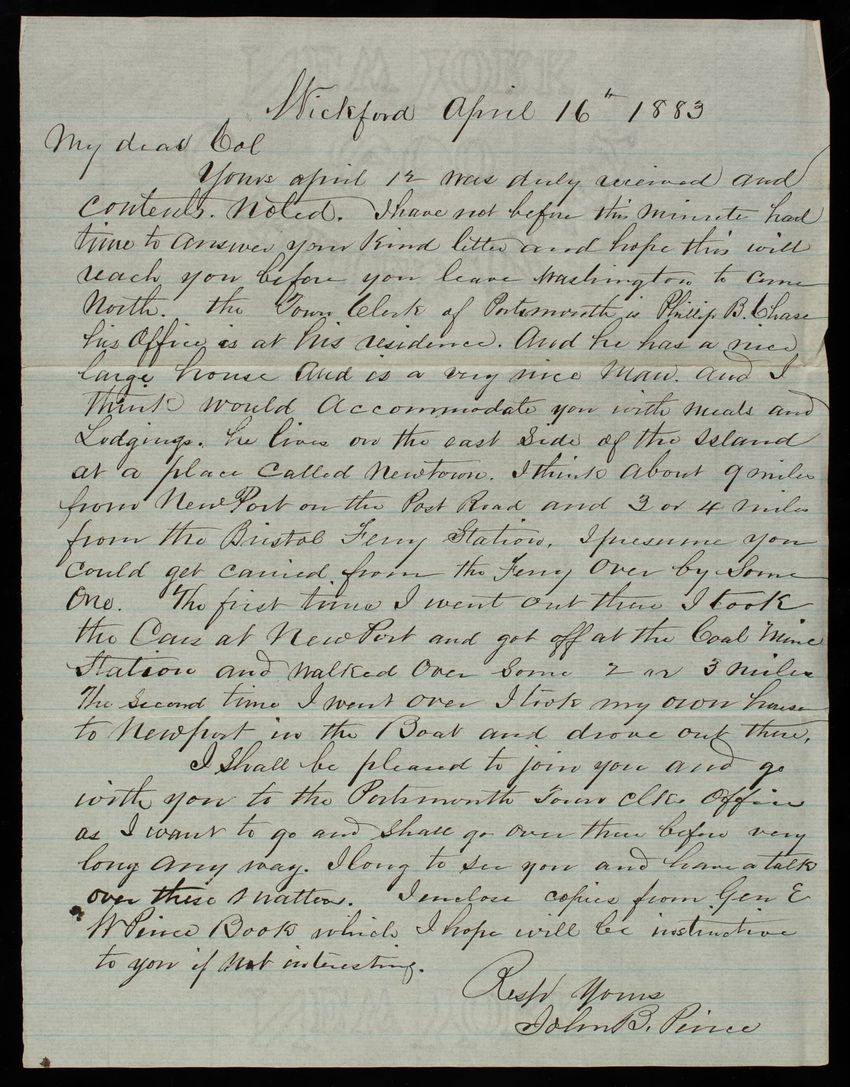 Wickford April 16th 1883
My dear Col
Yours april 12 was duly received and
contents. Noted. I have not before this minute had
time to answer your kind letter and hope this will
reach you before you leave Washington to come
North. the Town Clerk of Portsmouth is Phillip B. Chase
his Office is at his residence. And he has a nice
large house and is a very nice Man. and I
think would accommodate you with meals and
Lodgings. he lives on the east Side of the Island
at a place called Newtown. I think about 9 miles
from NewPort on the Post Road and 3 or 4 miles
from the Bristol Ferry Station. I presume you
could get carried from the Ferry over by some
one. The first time I went out there I took
the Cars at NewPort and got off at the Coal Mine
Station and walked over some 2 or 3 miles
The second time I went over I took my own horse
to Newport in the Boat and drove out there.
I shall be pleased to join you and go
with you to the Portsmouth Town Clks Office
as I want to go and shall go over there before very
long any way. I long to see you and have a talk
over these matters. I enclose copies from Gen E
W Pierce Book which I hope will be instructive
to you if not interesting.
Resp' Yours
John B. Pierce
NEW YORK
NEW YORK